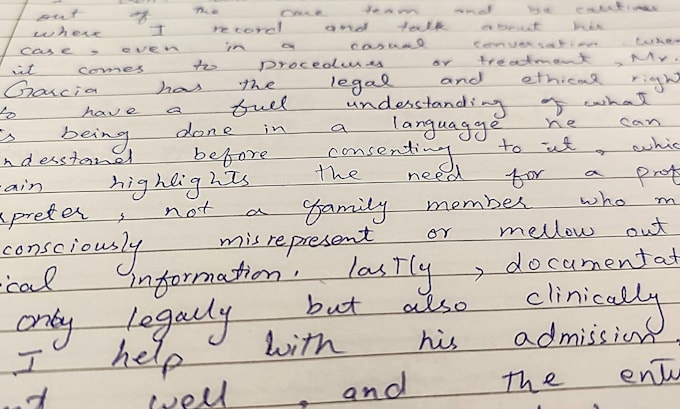 out of the care team and be cautious
where I record and talk about his
case, even in a casual conversation when
it comes to procedures or treatment, Mr.
Garcia has the legal and ethical right
to have a full understanding of what
is being done in a languagge he can
before consenting to it,
highlights the need for a
, not a family member who
misrepresent or mellow out
information. lastly,
only legally but also clinically
I help with his admission
well, and the